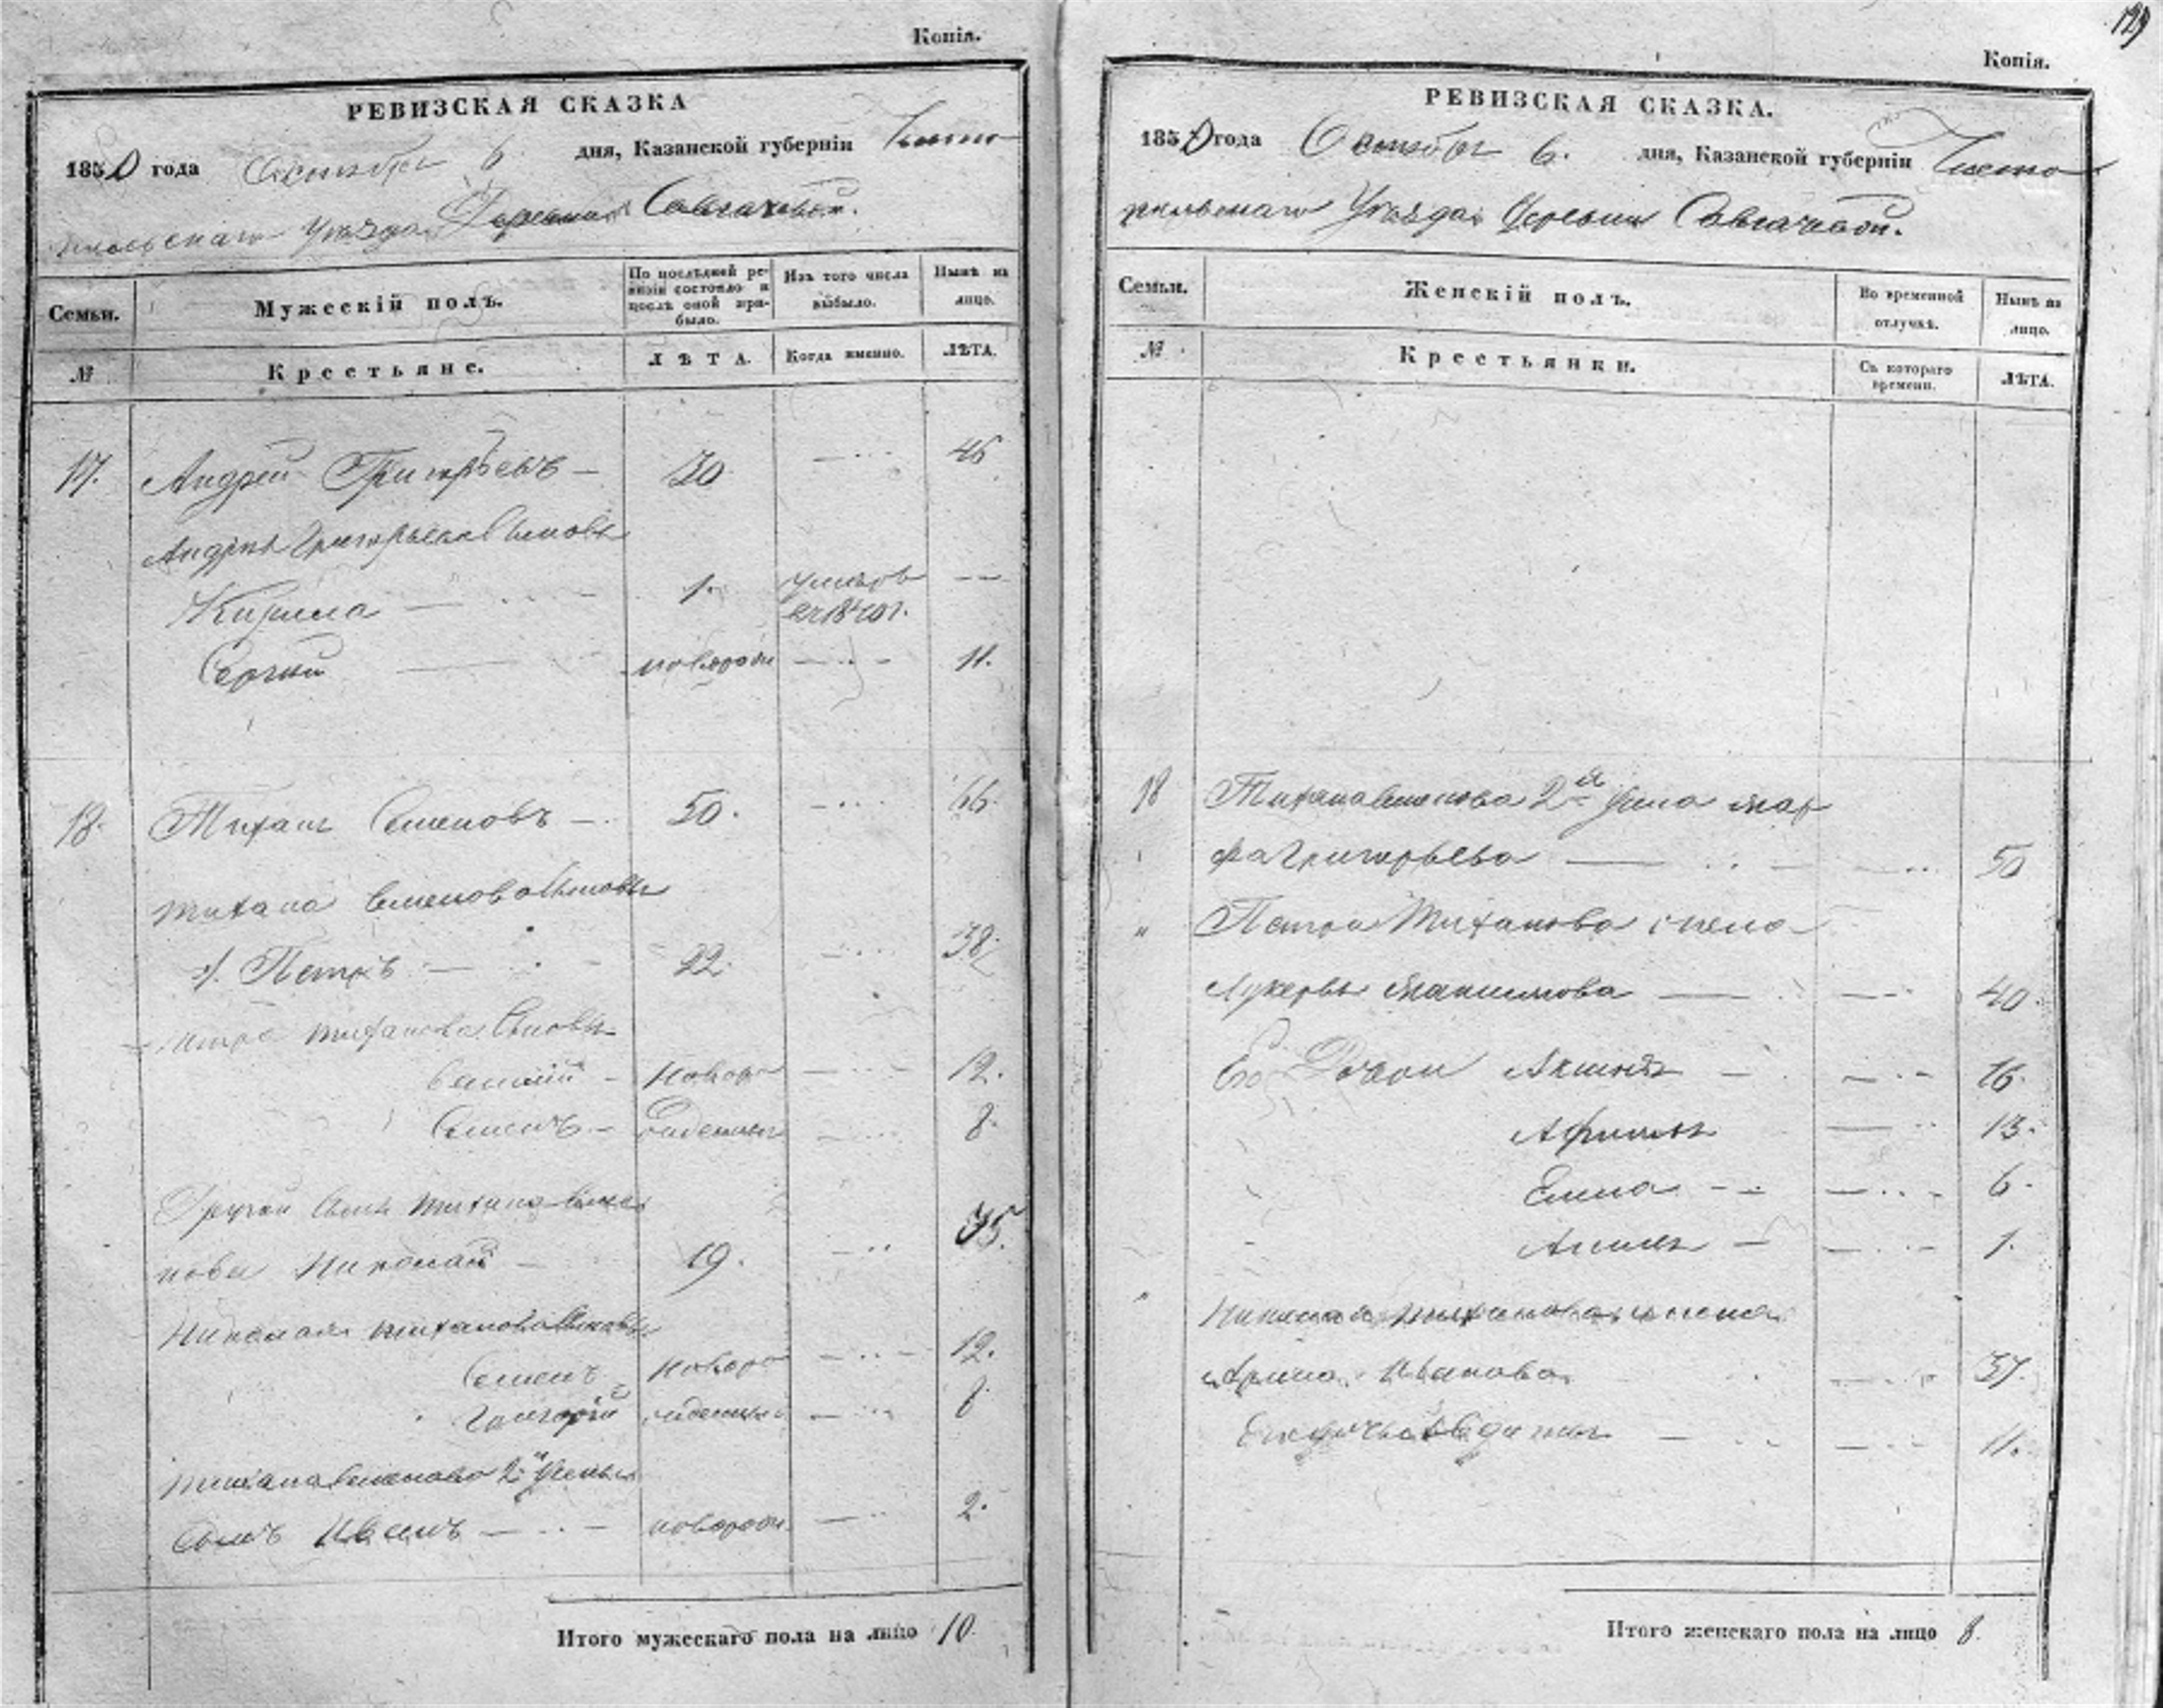 Копія.
РЕВИЗСКАЯ СКАЗКА
1850 года Октября 6 дня, Казанской губерніи Чисто
польскаго Уѣзда Деревни Савгачевой.
Семьи. Мужескій полъ. По послѣдней ревизіи состояло и послѣ оной прибыло. Изъ того числа выбыло. Нынѣ на лицо.
№ Крестьяне. ЛѢТА. Когда именно. ЛѢТА.
17. Андрей Григорьевъ — 30 46
Андрея Григорьева Сыновья
Кирила — 1. умеръ въ 1840 г. — —
Сергѣй новорожд 11.
18. Тиханъ Семеновъ — 50. 66.
Тихана Семенова Сыновья
1. Петръ — 22. 38.
Петра Тиханова Сыновья
Василій — новоро 12.
Семенъ — жденные 8.
Другой Сынъ Тихана Семе
нова Николай 19. 35.
Николая Тиханова Сыновья
Семенъ новоро 12.
Григорій жденные 8
Тихана Семенова 2й жены
Сынъ Иванъ — новорож. 2.
Итого мужескаго пола на лицо 10.
129
Копія.
РЕВИЗСКАЯ СКАЗКА.
1850 года Октября 6. дня, Казанской губерніи Чисто
польскаго Уѣзда Деревни Савгачевой.
Семьи. Женскій полъ. Во временной отлучкѣ. Нынѣ на лицо.
№ Крестьянки. Съ котораго времени. ЛѢТА.
18 Тихана Семенова 2я жена Мар
фа Григорьева — 50
" Петра Тиханова жена
Лукерья Максимова — 40.
Его Дочери Аксинья — 16.
13.
Елена 6.
1.
Николая Тиханова жена
Арина Иванова 37.
11.
Итого женскаго пола на лицо 8.